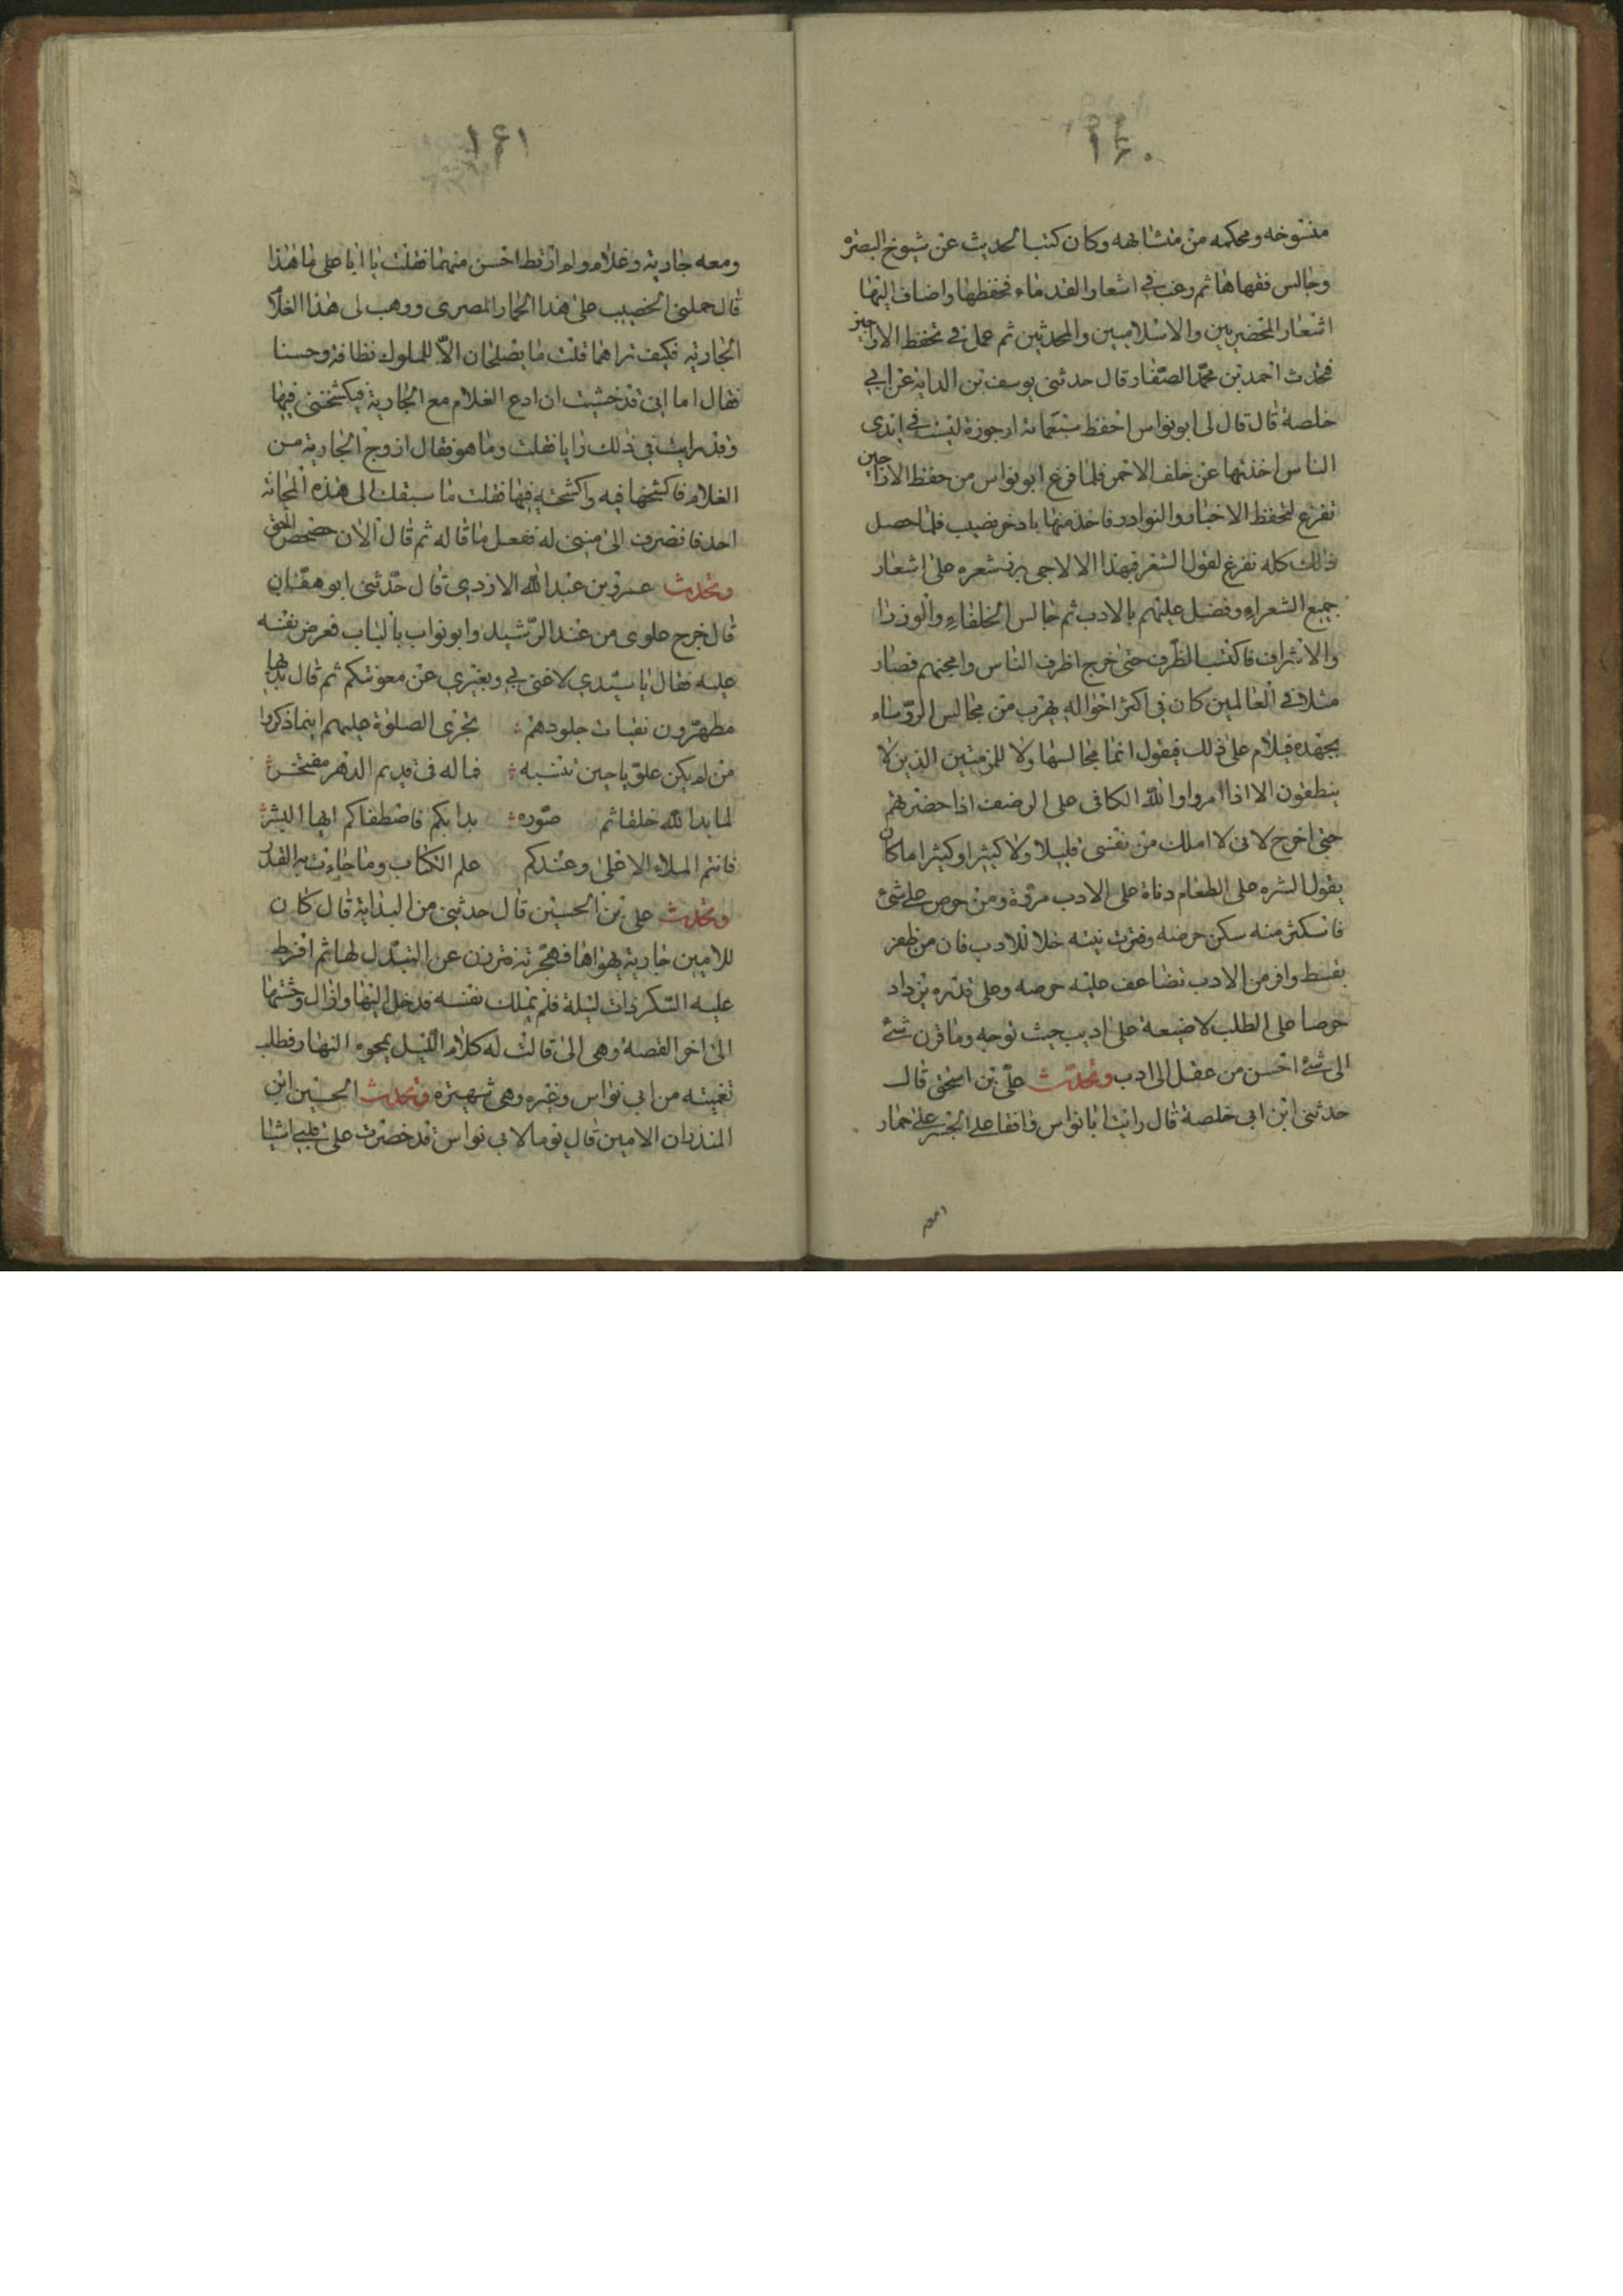 ١٦٠
منسوخه ومحكمه من متشابهه وكان كتب الحديث عن شيوخ البصره
وجالس فقهاها ثم رغب في اشعار القدماء فحفظها واضاف اليها
اشعار المخضرمين والاسلاميين والمحدثين ثم عمل في تحفظ الاراجيز
فحدث احمد بن محمد الصفار قال حدثني يوسف بن الداية عن ابي
خلصة قال قال لى ابو نواس احفظ سبعمائة ارجوزة ليست في ايدى
الناس اخذتها عن خلف الاحمر فلما فرغ ابو نواس من حفظ الاراجيز
تفرغ لتحفظ الاخبار والنوادر فاخذ منها باوفر نصيب فلما حصل
ذلك كله تفرغ لقول الشعر فبهذا الالاجى برز شعره على اشعار
جميع الشعراء وفضل عليهم بالادب ثم جالس الخلفاء والوزرا
والاشراف فاكتسب الظرف حتى خرج اظرف الناس وامجنهم فصار
مثلا في العالمين كان في اكثر احواله يهرب من مجالس الروساء
بجهده فيلام على ذلك فيقول انما مجالسها ولا للمزمتين الذين لا
ينطقون الا اذا امروا والله الكافى على الرضعف اذا حضرتهم
حتى اخرج لانى لا املك من نفسى قليلا ولا كثيرا وكثيرا ما كان
يقول الشره على الطعام دناة على الادب مروة ومن حرص على شئ
فاستكثر منه سكن حرصه وفترت نيته خلا للادب فان من ظفر
بقسط وافر من الادب تضاعف عليه حرصه وعلى قدره يزداد
حرصا على الطلب لا ضيعة على اديب حيث توجه وما قرن شئ
الى شئ احسن من عقل الى ادب وتحدث على بن اسحق قال
حدثنى ابن ابى خلصة قال رايت ابا نواس واقفا على الجسر على حمار
١٦١
ومعه جارية وغلام ولم ار قط احسن منهما فقلت يا ابا على ما هذا
قال حملنى الخصيب على هذا الحمار المصرى ووهب لى هذا الغلام
الجارية فكيف تراهما قلت ما يصلحان الا للملوك نظافة وحسنا
فقال اما انى قد خشيت ان ادع الغلام مع الجارية فيكشخنى فيها
وقد رايت في ذلك رايا فقلت وما هو فقال ازوج الجارية من
الغلام فاكشخها فيه واكشخه فيها فقلت ما سبقك الى هذه المجانة
احد فانصرف الى منزله ففعل ما قاله ثم قال الان حصحص الحق
وتحدث عمرو بن عبد الله الازدي قال حدثنى ابو هفان
قال خرج علوى من عند الرشيد وابو نواب بالباب فعرض نفسه
عليه فقال يا سيدي لا غنى بي وبغيري عن معونتكم ثم قال بديها
مطهرون نقيات جلودهم تجرى الصلوة عليهم اينما ذكروا
من لم يكن علويا حين تنسبه فماله فى قديم الدهر مفتخر
لما بدا لله خلقا ثم صوره بدا بكم فاصطفاكم ايها البشر
فانتم الملاء الاعلى وعندكم علم الكتاب وما جاءت به القدر
وتحدث على بن الحسين قال حدثنى من البداية قال كان
للامين جارية يهواها فهجرته فترفرف عن التبذل لها ثم افرط
عليه السكر ذات ليلة فلم يملك نفسه فدخل اليها وازال وحشتها
الى اخر القصة وهى الى قالت له كلام الليل يمحوه النهار فطلب
تغميته من ابى نواس وغيره وهى شهيرة وتحدث الحسين ابن
المنذر ان الامين قال يوما لابى نواس قد خضرت على قلبي اشيا